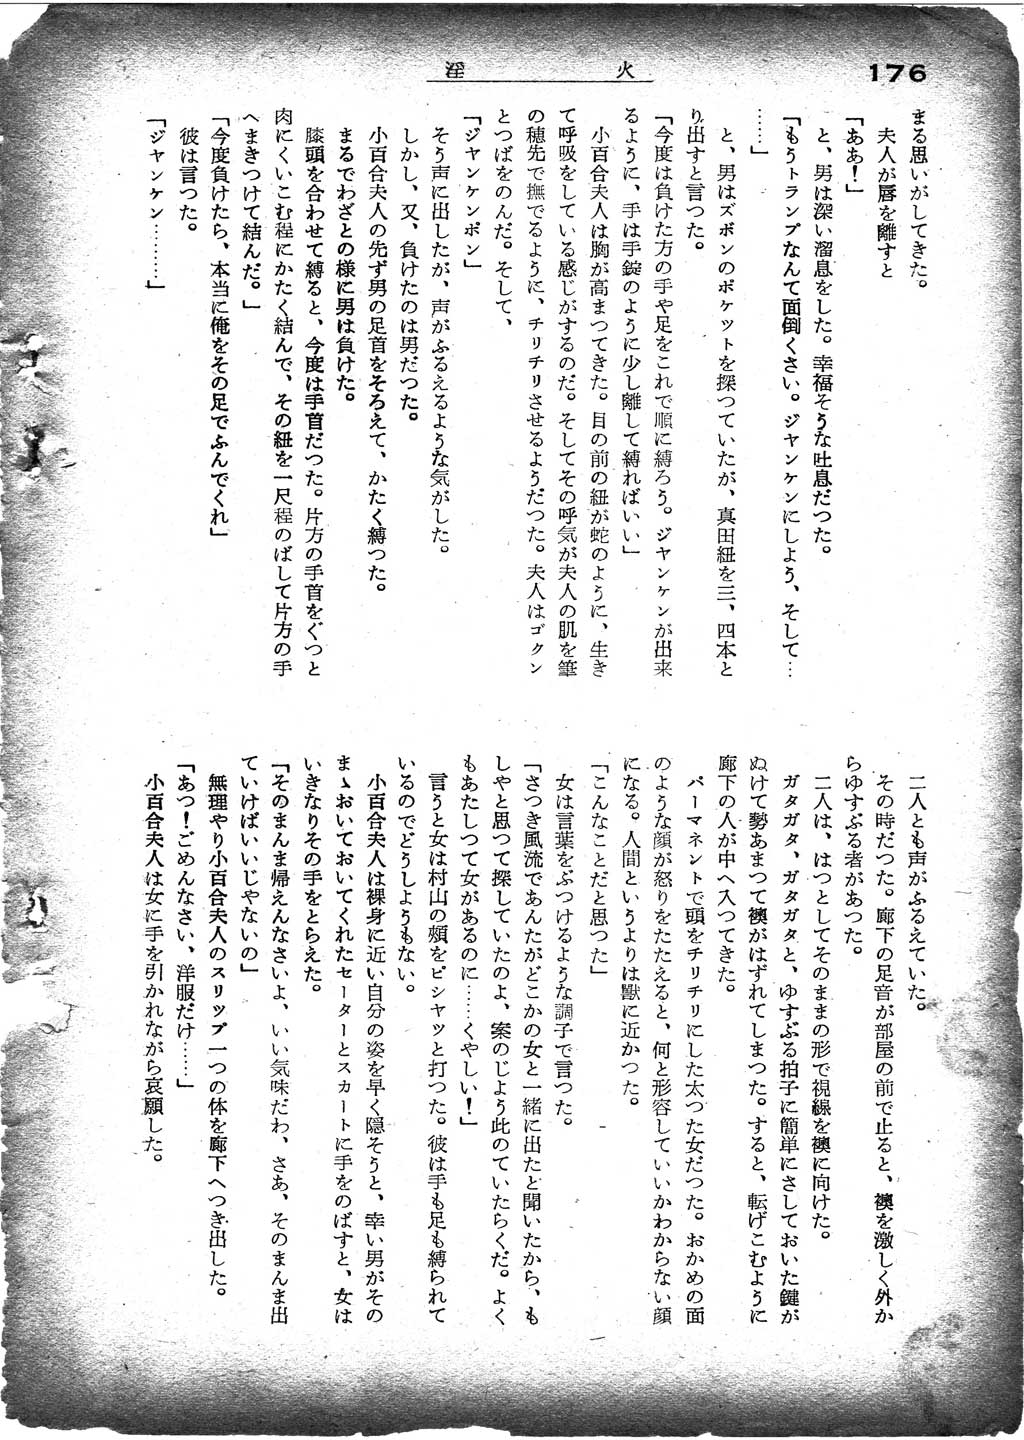 176
淫火
まる思いがしてきた。
夫人が唇を離すと
「ああ！」
と、男は深い溜息をした。幸福そうな吐息だつた。
「もうトランプなんて面倒くさい。ジヤンケンにしよう、そして…
……」
と、男はズボンのポケツトを探つていたが、真田紐を三、四本と
り出すと言つた。
「今度は負けた方の手や足をこれで順に縛ろう。ジヤンケンが出来
るように、手は手錠のように少し離して縛ればいい」
小百合夫人は胸が高まつてきた。目の前の紐が蛇のように、生き
て呼吸をしている感じがするのだ。そしてその呼気が夫人の肌を筆
の穂先で撫でるように、チリチリさせるようだつた。夫人はゴクン
とつばをのんだ。そして、
「ジヤンケンポン」
そう声に出したが、声がふるえるような気がした。
しかし、又、負けたのは男だつた。
小百合夫人の先ず男の足首をそろえて、かたく縛つた。
まるでわざとの様に男は負けた。
膝頭を合わせて縛ると、今度は手首だつた。片方の手首をぐつと
肉にくいこむ程にかたく結んで、その紐を一尺程のばして片方の手
へまきつけて結んだ。」
「今度負けたら、本当に俺をその足でふんでくれ」
彼は言つた。
「ジヤンケン…………」
二人とも声がふるえていた。
その時だつた。廊下の足音が部屋の前で止ると、襖を激しく外か
らゆすぶる者があつた。
二人は、はつとしてそのままの形で視線を襖に向けた。
ガタガタ、ガタガタと、ゆすぶる拍子に簡単にさしておいた鍵が
ぬけて勢あまつて襖がはずれてしまつた。すると、転げこむように
廊下の人が中へ入つてきた。
パーマネントで頭をチリチリにした太つた女だつた。おかめの面
のような顔が怒りをたたえると、何と形容していいかわからない顔
になる。人間というよりは獣に近かつた。
「こんなことだと思つた」
女は言葉をぶつけるような調子で言つた。
「さつき風流であんたがどこかの女と一緒に出たと聞いたから、も
しやと思つて探していたのよ、案のじよう此のていたらくだ。よく
もあたしつて女があるのに……くやしい！」
言うと女は村山の頬をピシヤツと打つた。彼は手も足も縛られて
いるのでどうしようもない。
小百合夫人は裸身に近い自分の姿を早く隠そうと、幸い男がその
まゝおいておいてくれたセーターとスカートに手をのばすと、女は
いきなりその手をとらえた。
「そのまんま帰えんなさいよ、いい気味だわ、さあ、そのまんま出
ていけばいいじやないの」
無理やり小百合夫人のスリツプ一つの体を廊下へつき出した。
「あつ！ごめんなさい、洋服だけ……」
小百合夫人は女に手を引かれながら哀願した。